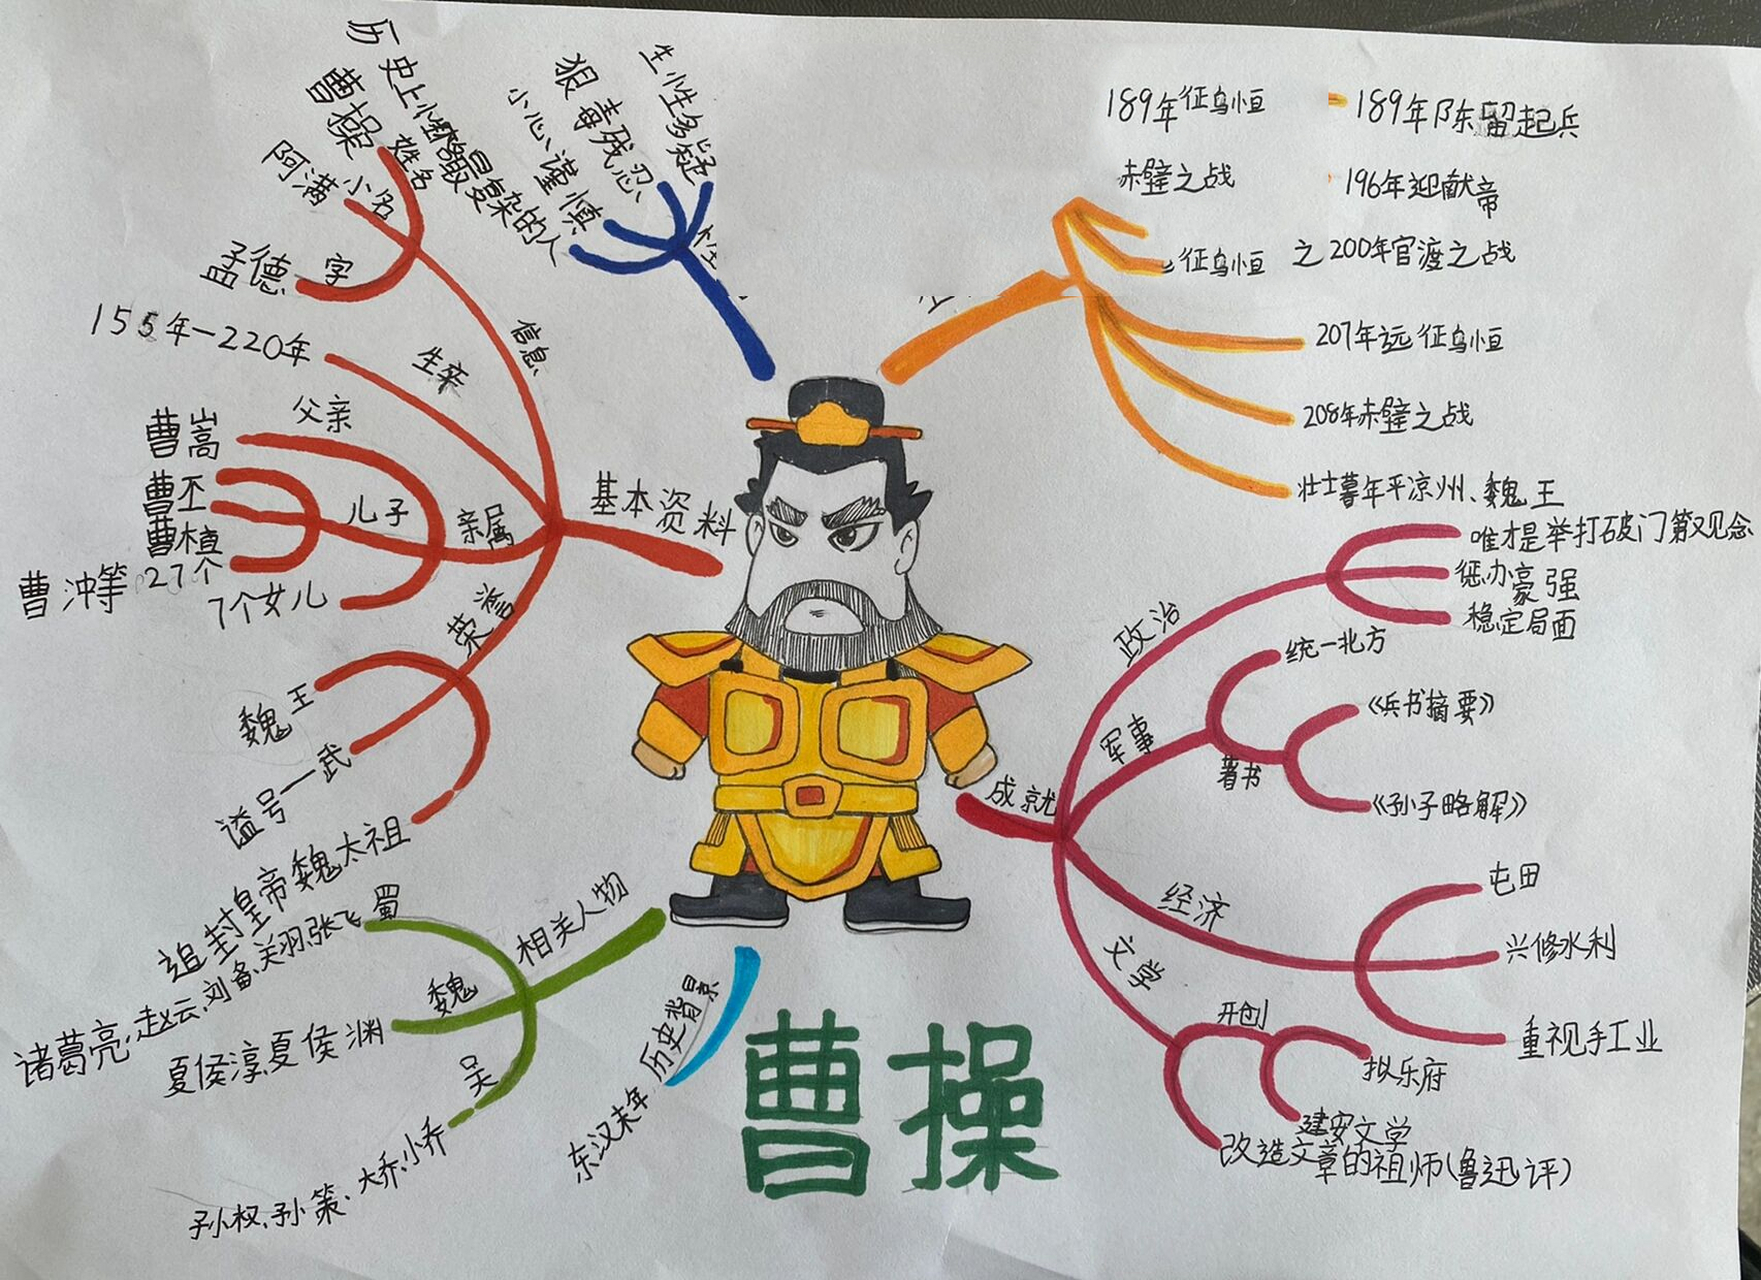 基本资料
信息
姓名
曹操
小名
阿满
字
孟德
155年—220年
父亲
曹嵩
亲属
儿子
曹丕
曹植
曹冲等27个
7个女儿
荣誉
魏王
谥号—武
追封皇帝魏太祖
生性多疑
狠毒残忍
小心谨慎
189年征乌恒
189年陈留起兵
赤壁之战
196年迎献帝
征乌恒
之200年官渡之战
207年远征乌恒
208年赤壁之战
壮士暮年平凉州、魏王
成就
政治
唯才是举打破门第观念
惩办豪强
稳定局面
军事
统一北方
著书
《兵书摘要》
《孙子略解》
经济
屯田
兴修水利
重视手工业
文学
开创
拟乐府
建安文学
改造文章的祖师(鲁迅评)
相关人物
蜀
诸葛亮,赵云,刘备,关羽,张飞
魏
夏侯淳,夏侯渊
吴
孙权,孙策、大乔,小乔
历史背景
东汉末年
曹操